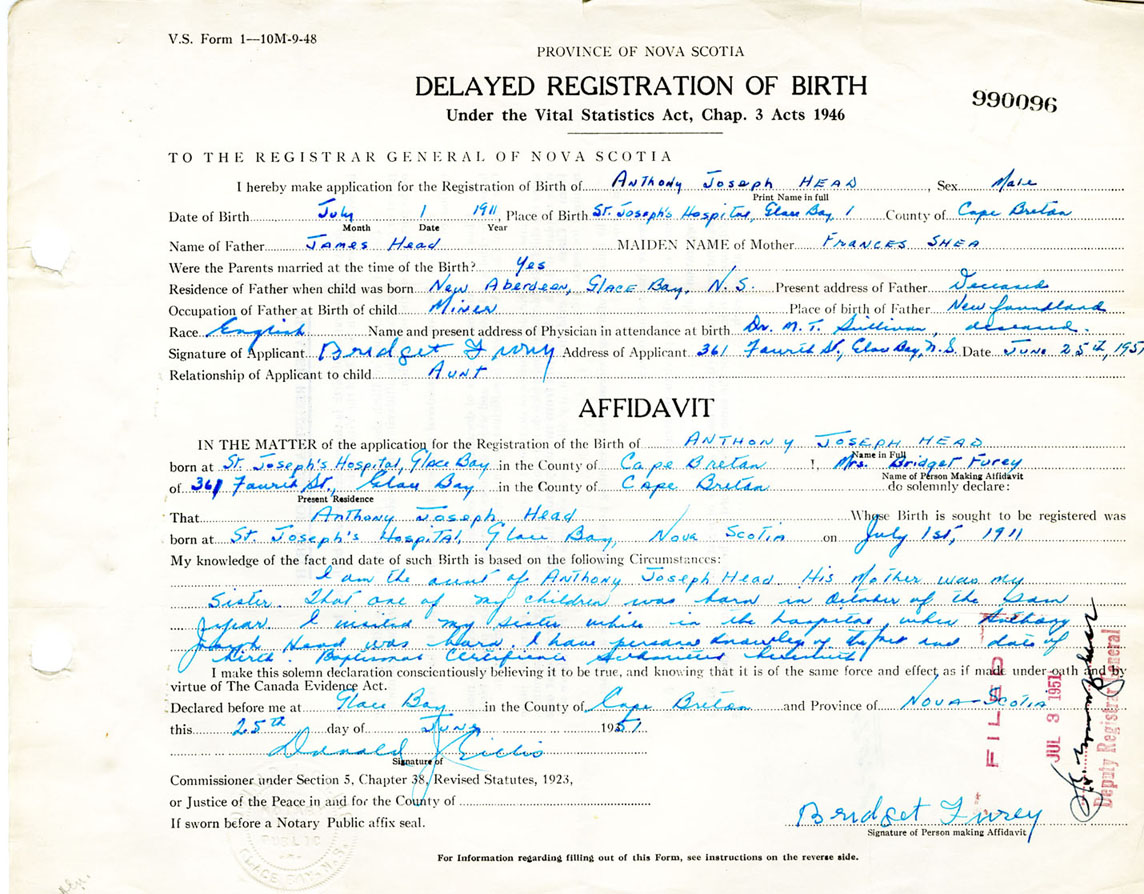 V.S. Form 1—10M-9-48
PROVINCE OF NOVA SCOTIA
DELAYED REGISTRATION OF BIRTH
990096
Under the Vital Statistics Act, Chap. 3 Acts 1946
TO THE REGISTRAR GENERAL OF NOVA SCOTIA
I hereby make application for the Registration of Birth of Anthony Joseph HEAD, Sex Male
Print Name in full
Date of Birth July 1 1911, Place of Birth St. Joseph's Hospital, Glace Bay County of Cape Breton
Month Date Year
Name of Father James Head MAIDEN NAME of Mother FRANCES SHEA
Were the Parents married at the time of the Birth? Yes
Residence of Father when child was born New Aberdeen, Glace Bay, N.S. Present address of Father Deceased
Occupation of Father at Birth of child Miner Place of birth of Father Newfoundland
Race English Name and present address of Physician in attendance at birth Dr. M. T. Sullivan, deceased.
Signature of Applicant Bridget Furey Address of Applicant 361 Fourth St., Glace Bay, N.S. Date June 25th, 1951
Relationship of Applicant to child Aunt
AFFIDAVIT
IN THE MATTER of the application for the Registration of the Birth of ANTHONY JOSEPH HEAD
Name in Full
born at St. Joseph's Hospital, Glace Bay in the County of Cape Breton I, Mrs. Bridget Furey
Name of Person Making Affidavit
of 361 Fourth St., Glace Bay in the County of Cape Breton do solemnly declare:
Present Residence
That Anthony Joseph Head Whose Birth is sought to be registered was
born at St. Joseph's Hospital, Glace Bay, Nova Scotia on July 1st, 1911
My knowledge of the fact and date of such Birth is based on the following Circumstances:
I am the aunt of Anthony Joseph Head. His Mother was my
Sister. That one of my children was born in October of the same
year. I visited my sister while in the hospital when Anthony
Joseph Head was born. I have personal knowledge of the fact and date of
birth. Baptismal Certificate submitted herewith
I make this solemn declaration conscientiously believing it to be true, and knowing that it is of the same force and effect as if made under oath and by
virtue of The Canada Evidence Act.
Declared before me at Glace Bay in the County of Cape Breton and Province of NOVA-SCOTIA
this 25th day of June 1951
Donald J Gillis
Signature of
Commissioner under Section 5, Chapter 38, Revised Statutes, 1923,
or Justice of the Peace in and for the County of
If sworn before a Notary Public affix seal.
Bridget Furey
Signature of Person making Affidavit
For Information regarding filling out of this Form, see instructions on the reverse side.
FILED
JUL 3 1951
Deputy Registrar General